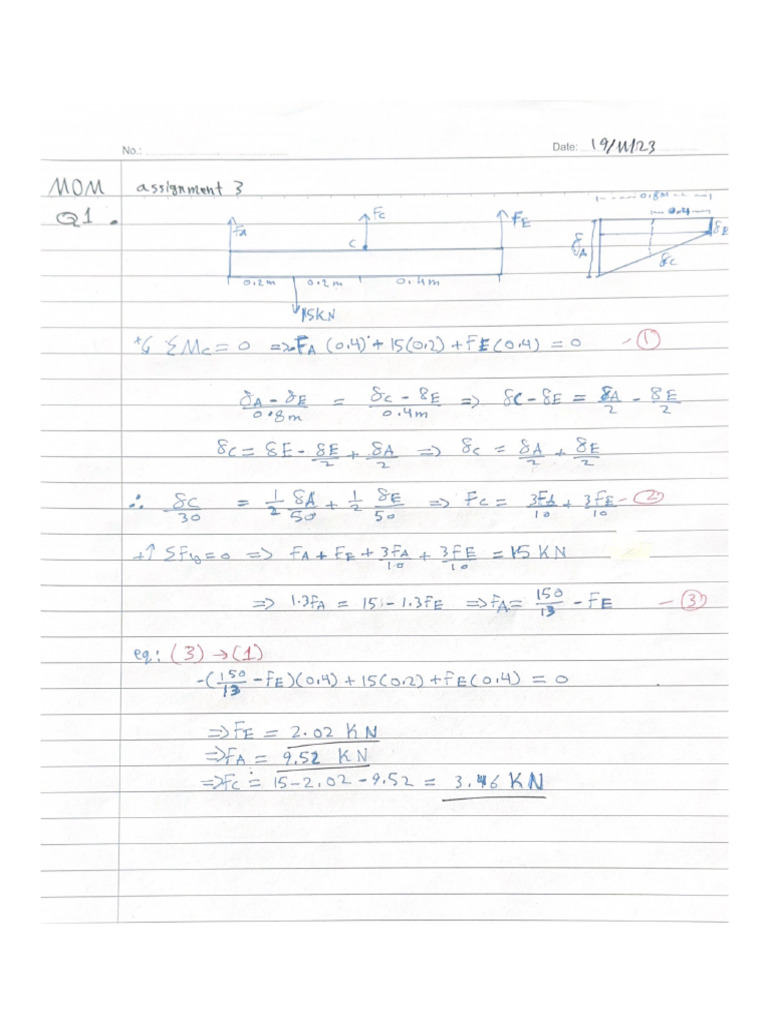 No.:
Date: 19/11/23
MOM assignment 3
Q1.
0.8m
0.4
FA
FC
FE
C
δA
δE
δC
0.2m 0.2m 0.4m
15KN
+↺ ΣMc = 0 ⇒ -FA (0.4) + 15(0.2) + FE(0.4) = 0 - ①
δA - δE / 0.8m = δC - δE / 0.4m ⇒ δC - δE = δA/2 - δE/2
δC = δE - δE/2 + δA/2 ⇒ δC = δA/2 + δE/2
∴ δC/30 = 1/2 δA/50 + 1/2 δE/50 ⇒ FC = 3FA/10 + 3FE/10 - ②
+↑ ΣFy = 0 ⇒ FA + FE + 3FA/10 + 3FE/10 = 15 KN
⇒ 1.3FA = 15 - 1.3FE ⇒ FA = 150/13 - FE - ③
eq: (3) → (1)
-(150/13 - FE)(0.4) + 15(0.2) + FE(0.4) = 0
⇒ FE = 2.02 KN
⇒ FA = 9.52 KN
⇒ FC = 15 - 2.02 - 9.52 = 3.46 KN